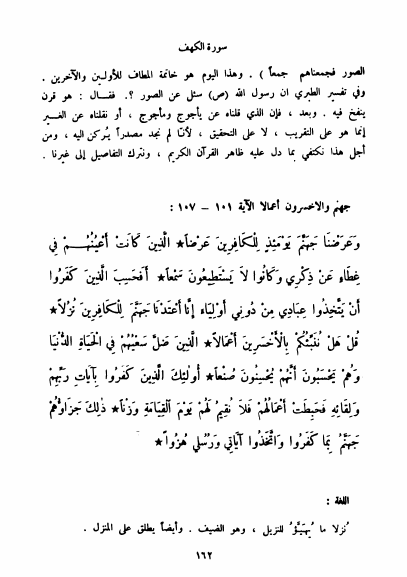 سورة الكهف
الصور فجمعناهم جمعاً ) . وهذا اليوم هو خاتمة المطاف للأولين والآخرين .
وفي تفسير الطبري ان رسول الله (ص) سئل عن الصور ؟. فقال : هو قرن
ينفخ فيه . وبعد ، فإن الذي قلناه عن يأجوج ومأجوج ، أو نقلناه عن الغير
إنما هو على التقريب ، لا على التحقيق ، لأنا لم نجد مصدراً يُركن اليه ، ومن
أجل هذا نكتفي بما دل عليه ظاهر القرآن الكريم ، ونترك التفاصيل إلى غيرنا .
جهنم والاخسرون أعمالا الآية ١٠١ – ١٠٧ :
وَعَرَضْنَا جَهَنَّمَ يَوْمَئِذٍ لِلْكَافِرِينَ عَرْضاً★ الَّذِينَ كَانَتْ أَعْيُنُهُمْ فِي
غِطَاءٍ عَنْ ذِكْرِي وَكَانُوا لَا يَسْتَطِيعُونَ سَمْعاً★ أَفَحَسِبَ الَّذِينَ كَفَرُوا
أَنْ يَتَّخِذُوا عِبَادِي مِنْ دُونِي أَوْلِيَاءَ إِنَّا أَعْتَدْنَا جَهَنَّمَ لِلْكَافِرِينَ نُزُلاً★
قُلْ هَلْ نُنَبِّئُكُمْ بِالْأَخْسَرِينَ أَعْمَالاً★ الَّذِينَ ضَلَّ سَعْيُهُمْ فِي الْحَيَاةِ الدُّنْيَا
وَهُمْ يَحْسَبُونَ أَنَّهُمْ يُحْسِنُونَ صُنْعاً★ أُولَئِكَ الَّذِينَ كَفَرُوا بِآيَاتِ رَبِّهِمْ
وَلِقَائِهِ فَحَبِطَتْ أَعْمَالُهُمْ فَلَا نُقِيمُ لَهُمْ يَوْمَ الْقِيَامَةِ وَزْناً★ ذَلِكَ جَزَاؤُهُمْ
جَهَنَّمُ بِمَا كَفَرُوا وَاتَّخَذُوا آيَاتِي وَرُسُلِي هُزُواً★
اللغة :
نُزلا ما يُهيّؤ للنزيل ، وهو الضيف . وأيضاً يطلق على المنزل .
١٦٢